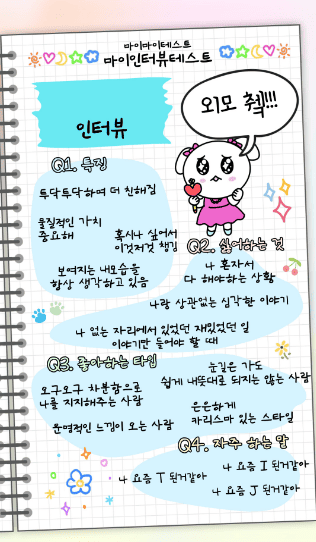 마이마이테스트
마이인터뷰테스트
외모 췤!!!
인터뷰
Q1. 특징
투닥투닥하며 더 친해짐
물질적인 가치
중요해
혹시나 싶어서
이것저것 챙김
보여지는 내모습을
항상 생각하고 있음
Q2. 싫어하는 것
나 혼자서
다 해야하는 상황
나랑 상관없는 심각한 이야기
나 없는 자리에서 있었던 재밌었던 일
이야기만 들어야 할 때
Q3. 좋아하는 타입
눈길은 가도
쉽게 내뜻대로 되지는 않는 사람
오구오구 차분함으로
나를 지지해주는 사람
은은하게
카리스마 있는 스타일
운명적인 느낌이 오는 사람
Q4. 자주 하는 말
나 요즘 I 된거같아
나 요즘 T 된거같아
나 요즘 J 된거같아